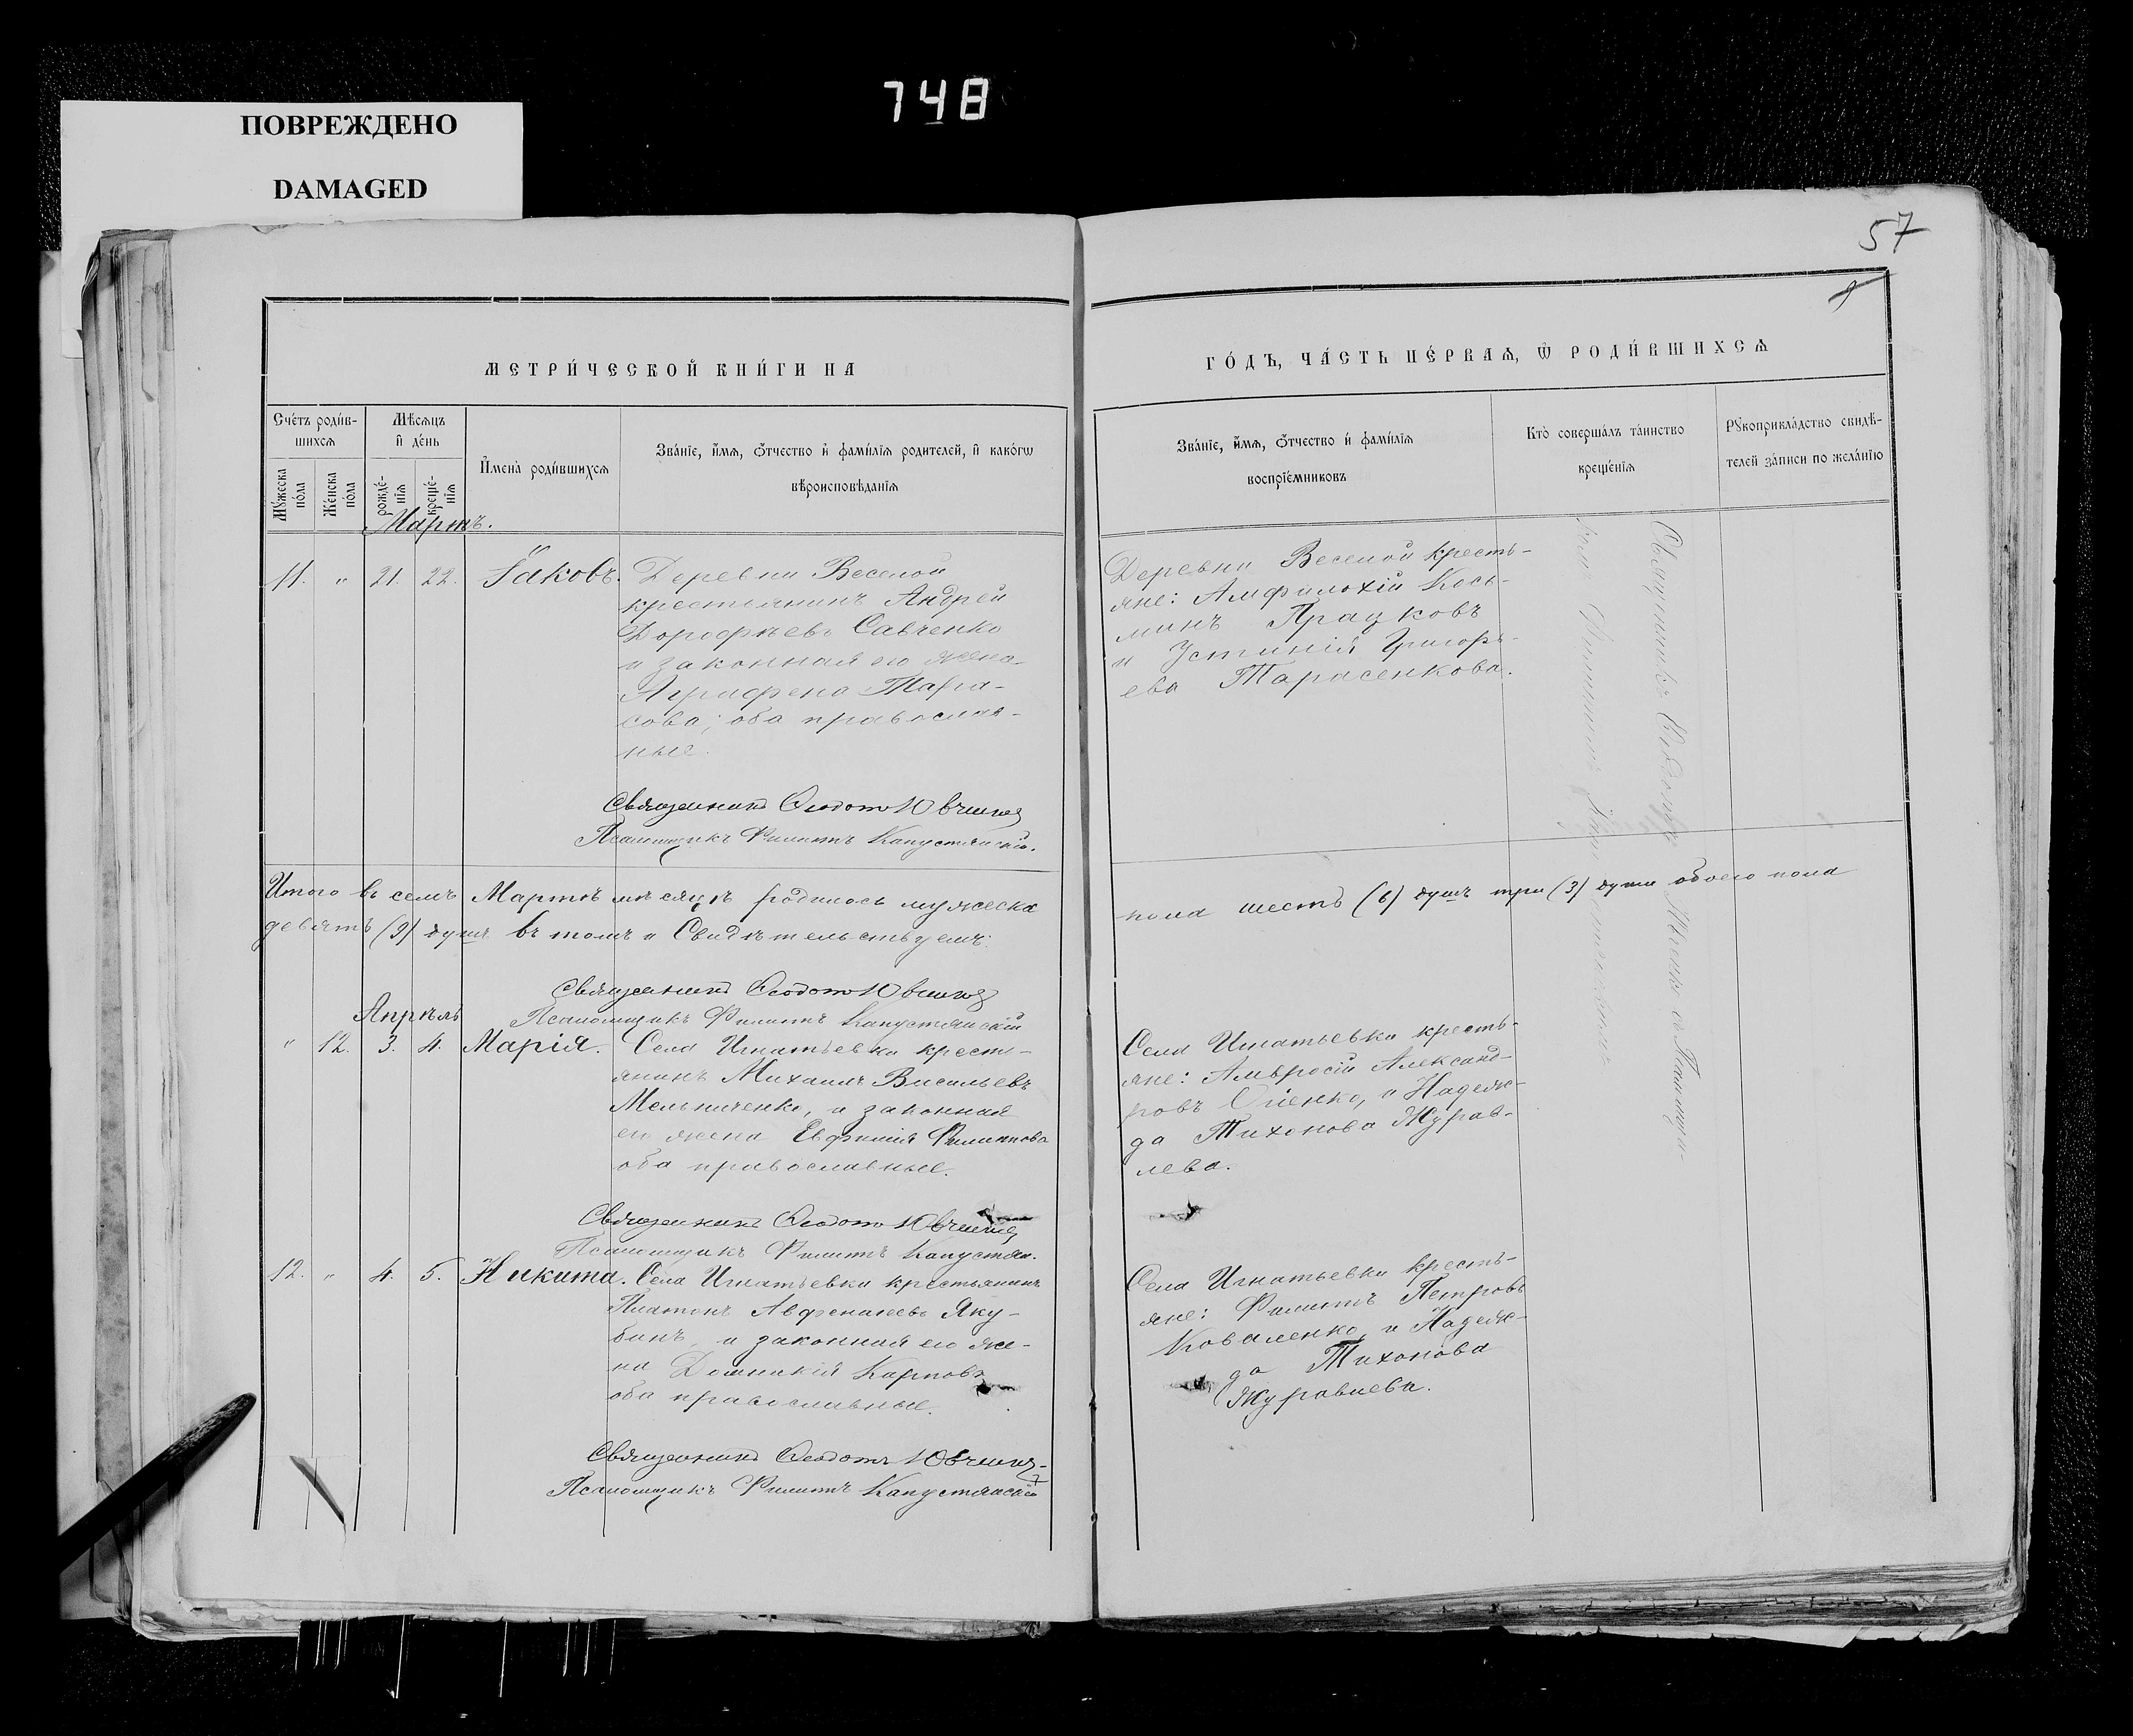 748
ПОВРЕЖДЕНО
DAMAGED
57
МЕТРИ́ЧЕСКОЙ КНИ́ГИ НА
ГО́ДЪ, ЧА́СТЬ ПЕ́РВАѦ, Ѡ҃ РОДИ́ВШИХСѦ
Сче́тъ роди́в-
шихсѧ
Мѣ́сѧцъ
и҆ де́нь
Мꙋ́жеска
по́ла
Же́нска
по́ла
рожде́-
нїѧ
креще́-
нїѧ
И҆мена̀ роди́вшихсѧ
Зва́нїе, и҆́мѧ, ѻ҆́тчество и҆ фами́лїѧ роди́телей, и҆ како́гѡ
вѣроисповѣ́данїѧ
Зва́нїе, и҆́мѧ, ѻ҆́тчество и҆ фами́лїѧ
воспрїе́мниковъ
Кто̀ соверша́лъ та́инство
креще́нїѧ
Рꙋкоприкла́дство свидѣ́-
телей за́писи по жела́нїю
Мартъ.
11. " 21. 22. Іаковъ. Деревни Веселой
крестьянинъ Андрей
Дорофѣевъ Савченко
и законная его жена
Агрифена Тара-
сова; оба православ-
ные.
Священникъ Ѳеодотъ
Псаломщикъ Филиппъ Капустянскій.
Деревни Веселой кресть-
яне: Амфилохій Кось-
минъ Прадковъ
и Устинія Григорь-
ева Тарасенкова.
Священникъ Ѳеодотъ
Итого въ семъ Мартѣ мѣсяцѣ родилось мужеска
пола шесть (6) душъ три (3) души обоего пола
девять (9) душъ въ томъ и Свидѣтельствуемъ:
Священникъ Ѳеодотъ
Псаломщикъ Филиппъ Капустянскій
Апрѣль
" 12. 3. 4. Марія. Села Игнатьевки кресть-
янинъ Михаилъ Васильевъ
Мельниченко, и законная
его жена Евфимія Филиппова
оба православные.
Священникъ Ѳеодотъ
Псаломщикъ Филиппъ Капустян.
Села Игнатьевки кресть-
яне: Амвросій Александ-
ровъ и Надеж-
да Тихонова Журав-
лева.
12. " 4. 5. Никита. Села Игнатьевки крестьянинъ
Платонъ Авфенакевъ Яку-
бинъ, и законная его же-
на Домникія Карпова
оба православные.
Священникъ Ѳеодотъ
Псаломщикъ Филиппъ Капустянскій
Села Игнатьевки кресть-
яне: Филиппъ Петровъ
Коваленко, и Надеж-
да Тихонова
Журавлева.